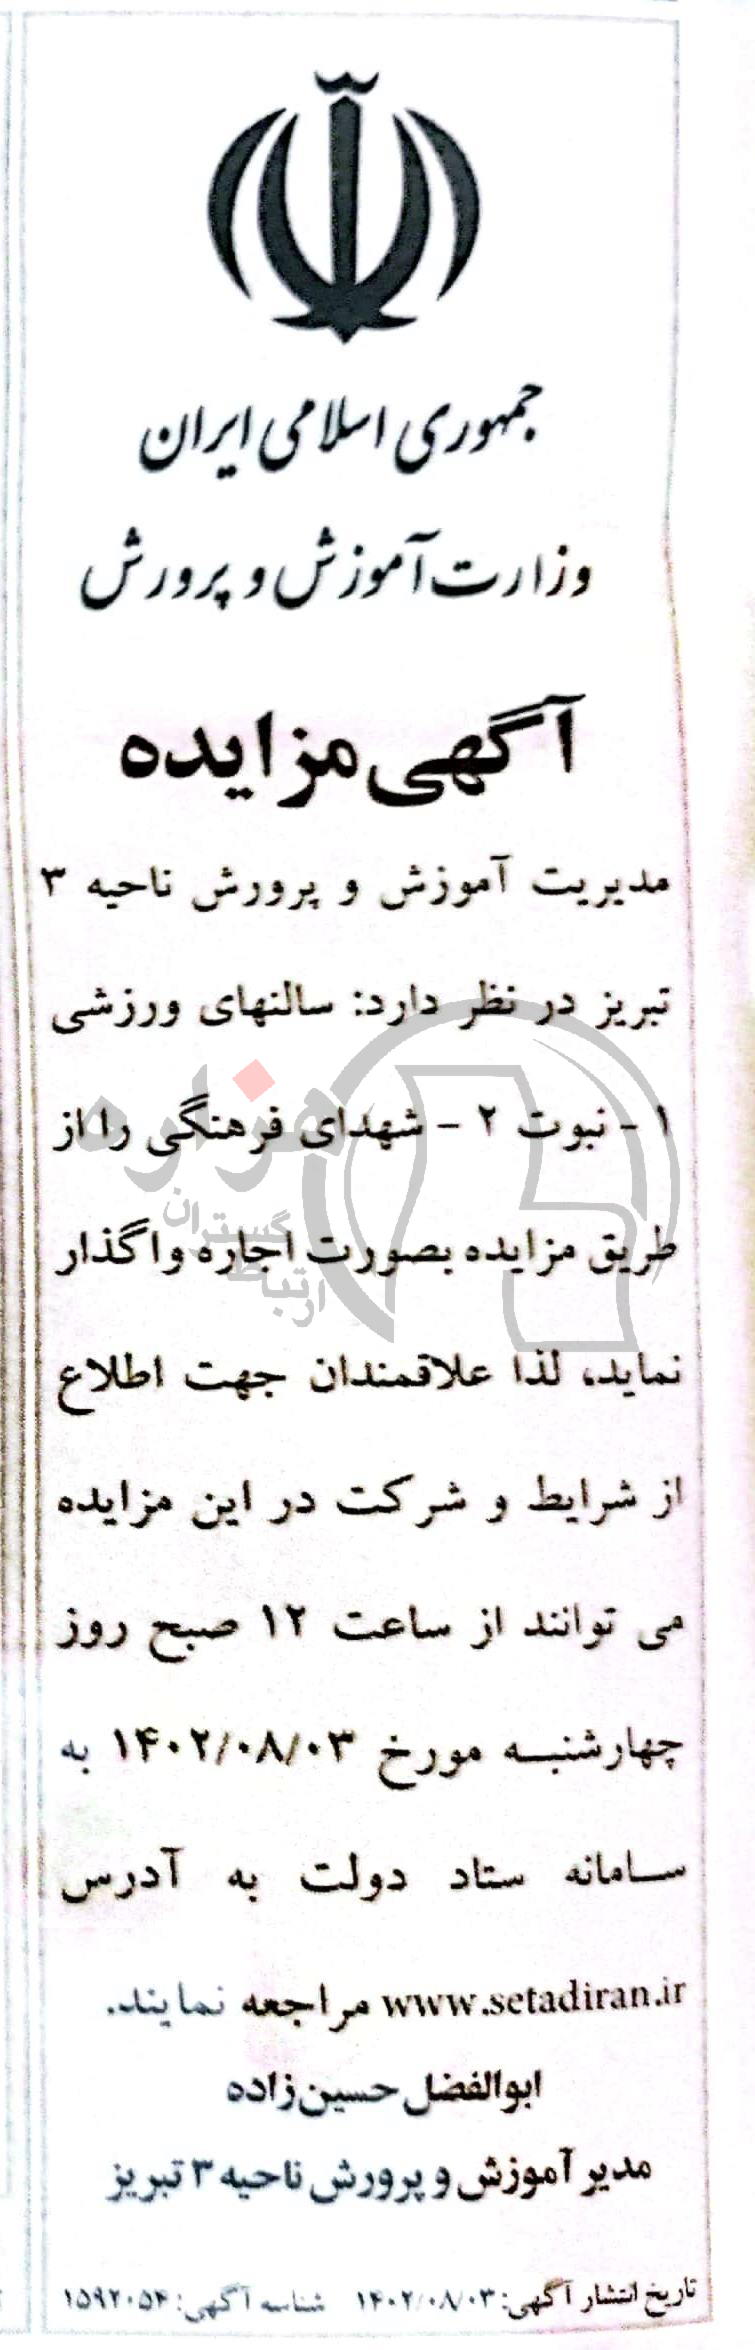 جمهوری اسلامی ایران
وزارت آموزش و پرورش
آگهی مزایده
مدیریت آموزش و پرورش ناحیه ۳
تبریز در نظر دارد: سالنهای ورزشی
۱ - نبوت ۲ - شهدای فرهنگی را از
طریق مزایده بصورت اجاره واگذار
نماید، لذا علاقمندان جهت اطلاع
از شرایط و شرکت در این مزایده
می توانند از ساعت ۱۲ صبح روز
چهارشنبه مورخ ۱۴۰۲/۰۸/۰۳ به
سامانه ستاد دولت به آدرس
www.setadiran.ir مراجعه نمایند.
ابوالفضل حسین‌زاده
مدیر آموزش و پرورش ناحیه ۳ تبریز
تاریخ انتشار آگهی: ۱۴۰۲/۰۸/۰۳ شناسه آگهی: ۱۵۹۲۰۵۴
هزاره
گستران
ارتباط